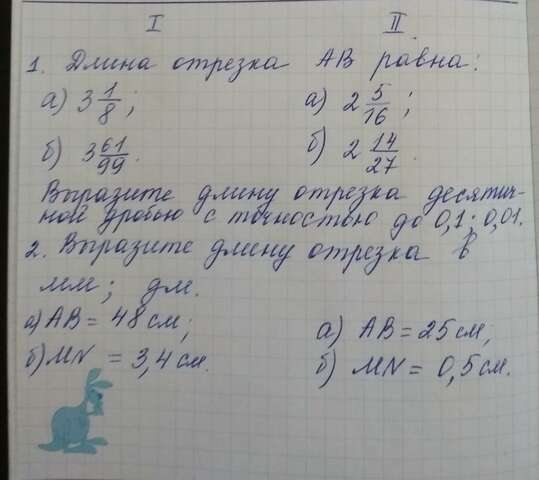 I II
1. Длина отрезка АВ равна:
а) 3 1/8; а) 2 5/16;
б) 3 61/99. б) 2 14/27.
Выразите длину отрезка десятич-
ной дробью с точностью до 0,1; 0,01.
2. Выразите длину отрезка в
мм; дм.
а) АВ = 48 см; а) АВ = 25 см;
б) MN = 3,4 см. б) MN = 0,5 см.